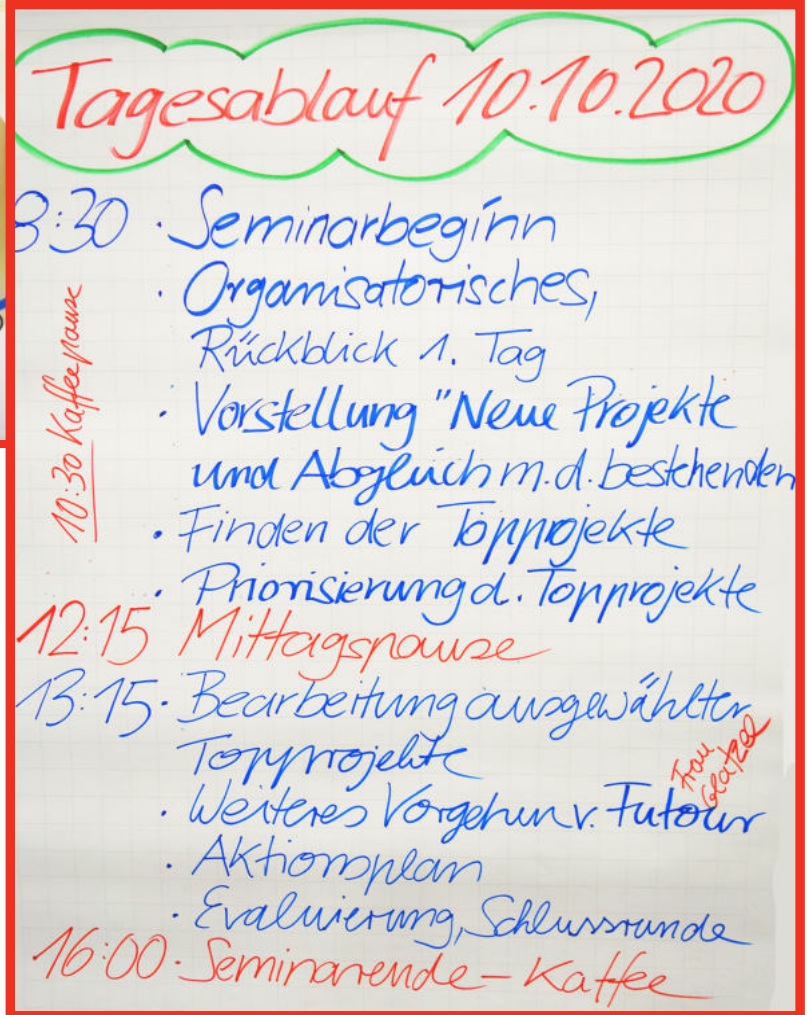 Tagesablauf 10.10.2020
8:30 · Seminarbeginn
· Organisatorisches,
Rückblick 1. Tag
10:30 Kaffeepause
· Vorstellung "Neue Projekte
und Abgleich m.d. bestehenden
· Finden der Topprojekte
· Priorisierung d. Topprojekte
12:15 Mittagspause
13:15 · Bearbeitung ausgewählter
Topprojekte
Frau
Glatzel
· Weiteres Vorgehen v. Futour
· Aktionsplan
· Evaluierung, Schlussrunde
16:00 · Seminarende – Kaffee